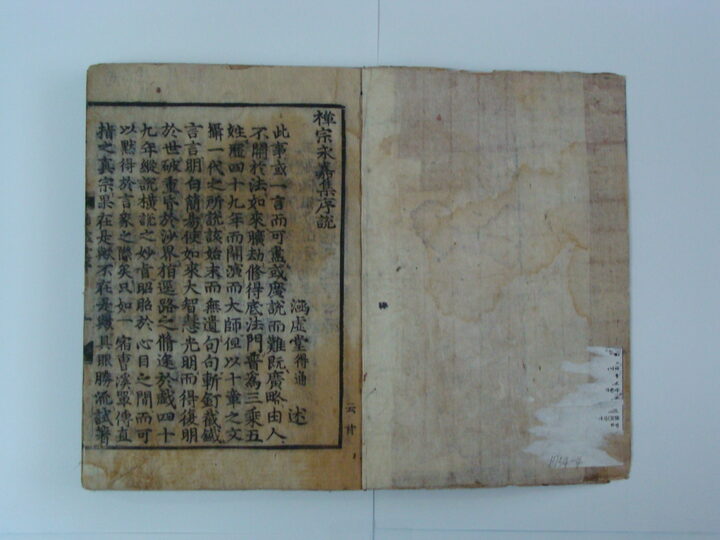 禪宗永嘉集序說
涵虛堂得通 述
此事或一言而可盡或廣說而難旣廣略由人
不關於法如來曠劫修得底法門普爲三乘五
姓歷四十九年而開演而大師但以十章之文
攝一代之所說該始末而無遺句句斬釘截鐵
言言明白簡易使如來大智慧光明而得後明
於世破重昏於沙界指逕路之脩途於戱四十
九年縱說橫說之妙旨昭昭於心目之間而可
以默得於言象之際矣只如一宿曹溪單傳直
指之眞宗果在是歟不在是歟具眼勝流試著
1734-4